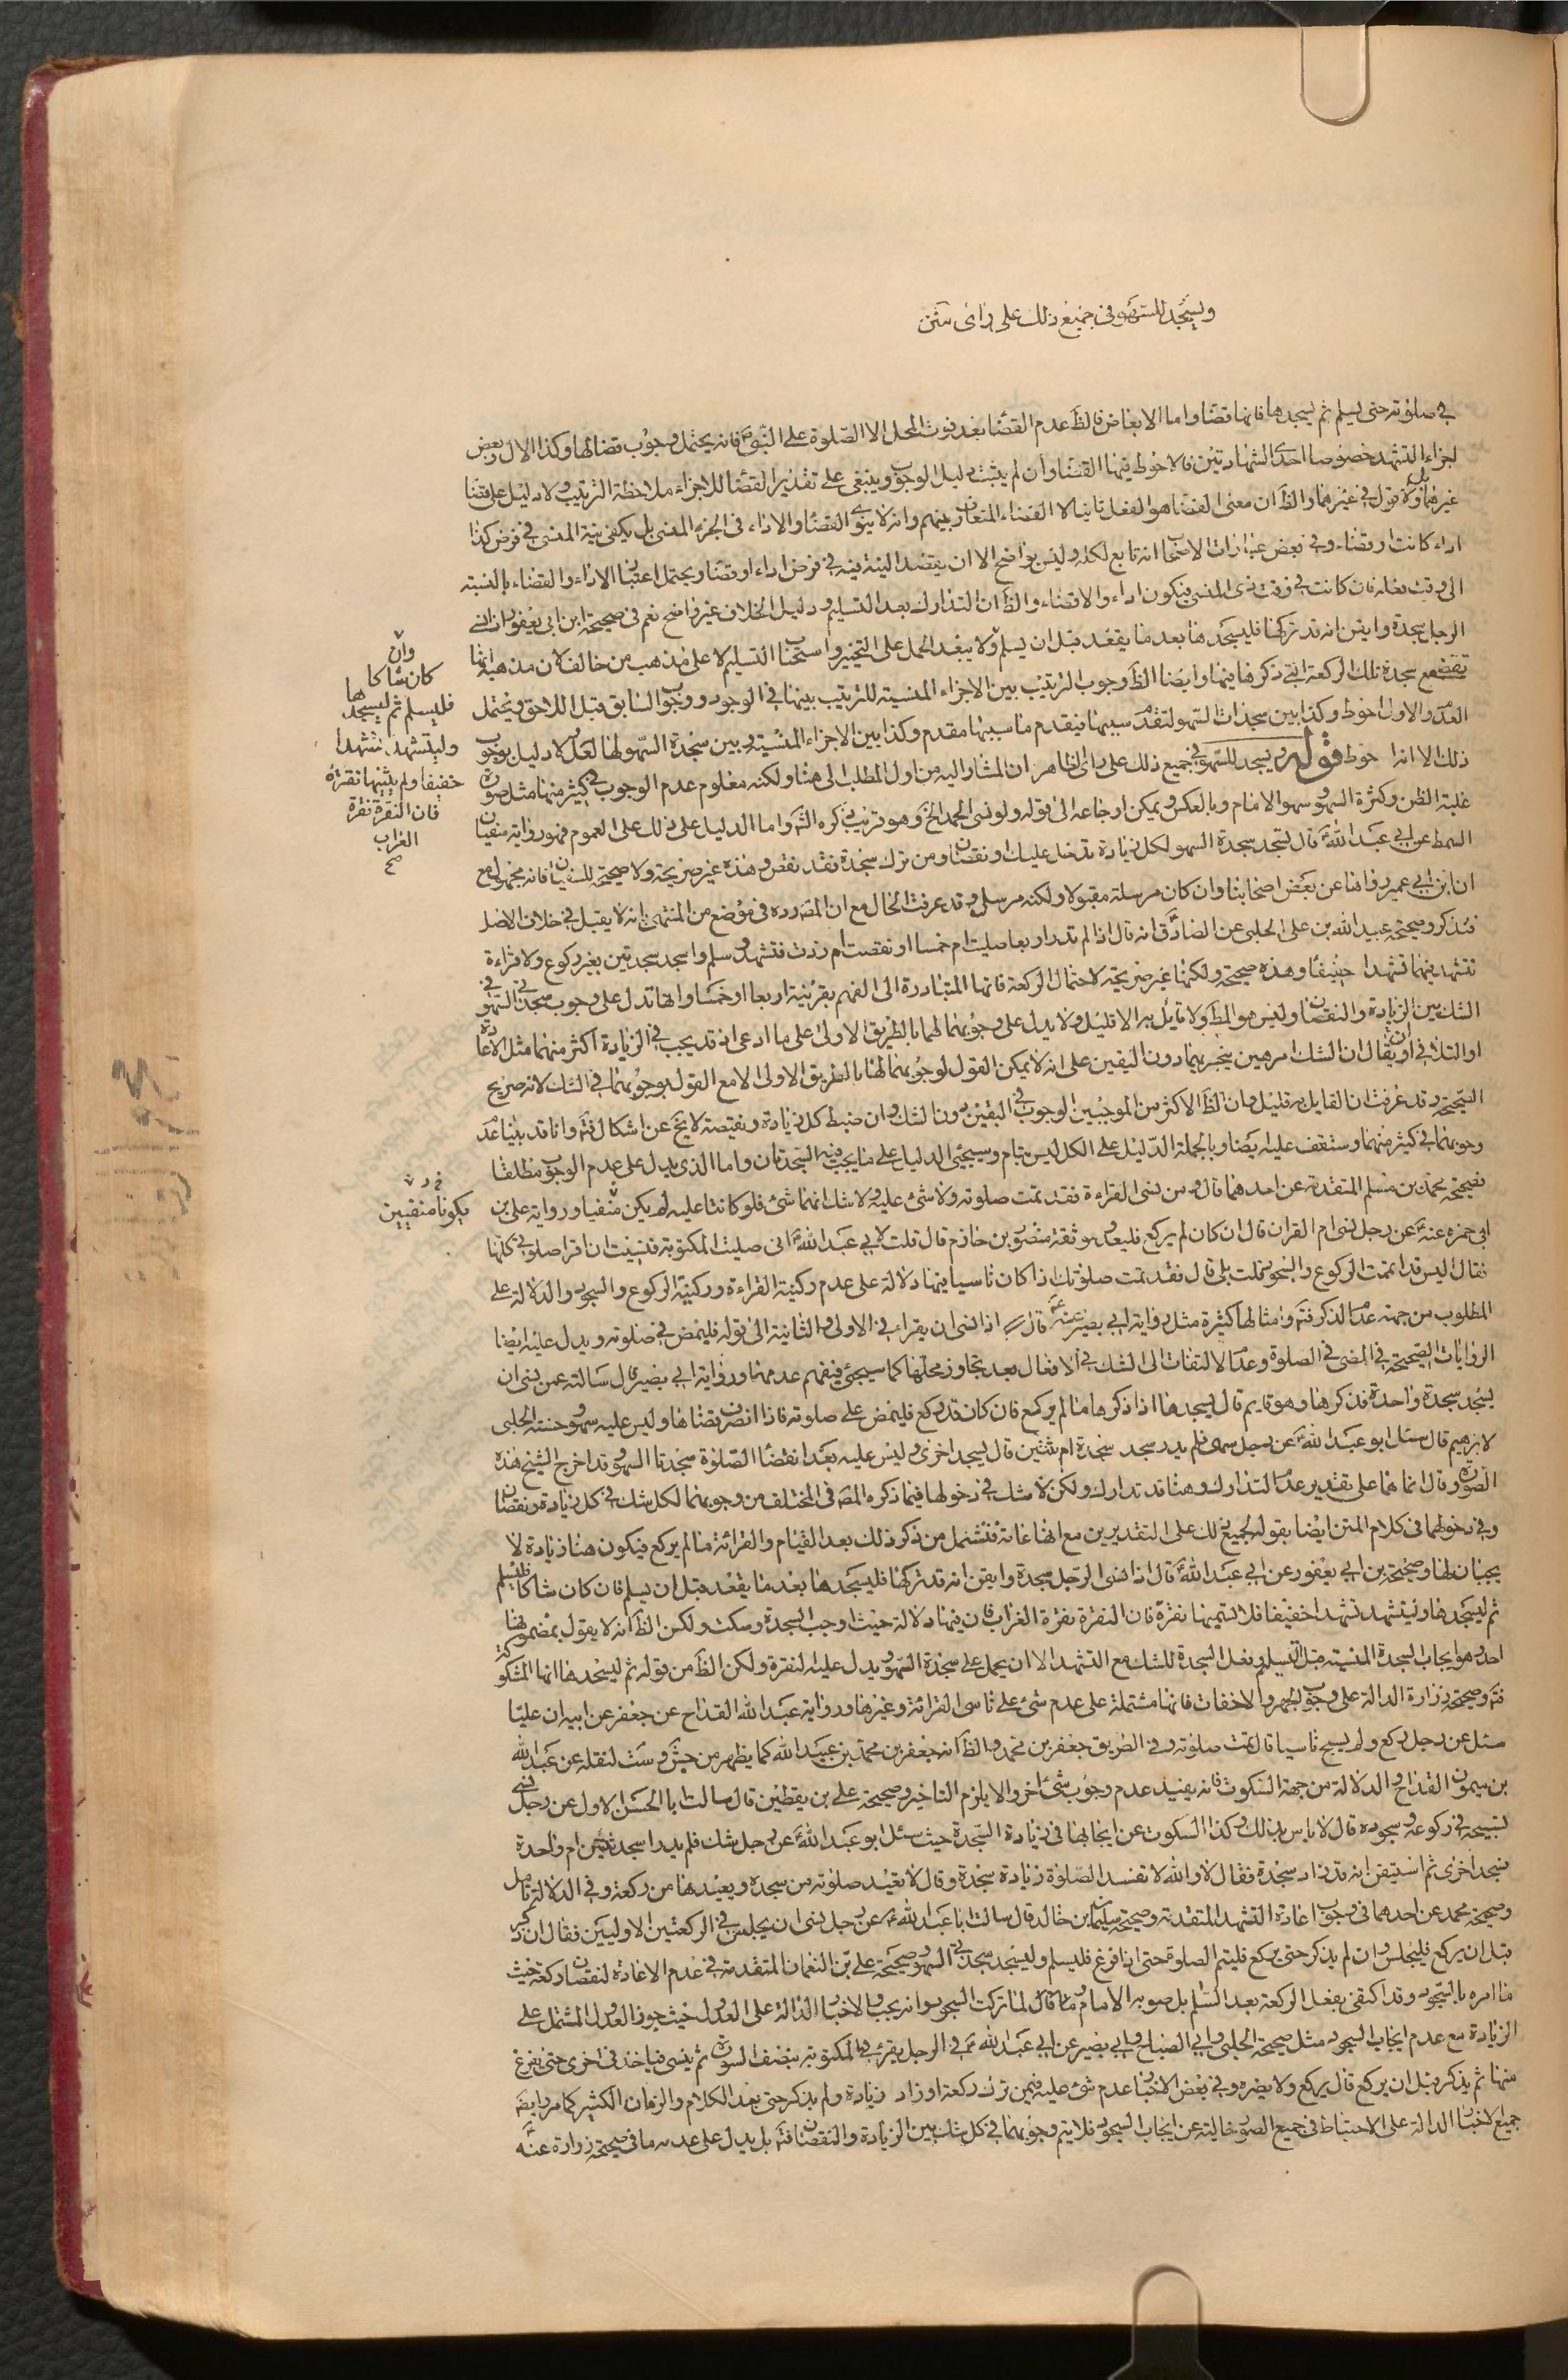 ويسجد للسهو في جميع ذلك على راى متن
في صلوته حتى يسلم ثم يسجدها فانها قضاء واما الابعاض فالظ عدم القضاء بعد فوت المحل الا الصلوة على النبي ص فانه يحتمل وجوب قضائها وكذا الال وبعض
اجزاء التشهد خصوصا احدى الشهادتين فالاحوط فيها القضاء وان لم يثبت دليل الوجوب وينبغى على تقدير القضاء للاجزاء ملاحظة الترتيب ولا دليل على قضاء
غيرهما وكذا قول في غيرهما والظ ان معنى القضاء هو الفعل ثانيا لا القضاء المتعارف بينهم وانه لا ينوى القضاء والاداء في الجزء المنسى بل يكفى نية المنسى في فرض كذا
اداء كانت او قضاء وفي بعض عبارات الاصحاب انه تابع لكله وليس بواضح الا ان يقصد النية فيه في فرض اداء او قضاء ويحتمل اعتبار الاداء والقضاء بالنسبة
الى وقت فعله فان كانت في وقت ذى المنسى فيكون اداء والا قضاء والظ ان التدارك بعد التسليم ودليل الخلاف غير واضح نعم في صحيحة ابن ابى يعفور اذا نسى
الرجل سجدة وايقن انه قد تركها فليسجدها بعد ما يقعد قبل ان يسلم ولا يبعد الحمل على التخيير واستحباب التسليم لا على مذهب من خالف لان مذهبه انما
تقضى مع سجدة تلك الركعة التي ذكرها فيها وايضا الظ وجوب الترتيب بين الاجزاء المنسية للترتيب بينها في الوجود ووجوب السابق قبل اللاحق ويحتمل
العدم والاول احوط وكذا بين سجدات السهو لتقدم سببها فيقدم ما سببها مقدم وكذا بين الاجزاء المنسية وبين سجدة السهو لها لعل لا دليل بوجوب
ذلك الا انه احوط قوله ويسجد للسهو في جميع ذلك على راى الظاهر ان المشار اليه من اول المطلب الى هنا ولكنه معلوم عدم الوجوب في كثير منها مثل صورة
غلبة الظن وكثرة السهو وسهو الامام وبالعكس ويمكن ارجاعه الى قوله ولو نسى الحمد الخ وهو قريب ذكره الشه واما الدليل على ذلك على العموم فهو رواية سفيان
السمط عن ابى عبد الله ع قال تسجد سجدة السهو لكل زيادة تدخل عليك او نقصان ومن ترك سجدة فقد نقص وهذه غير صريحة ولا صحيحة لسفيان فانه مجهول مع
ان ابن ابى عمير رواها عن بعض اصحابنا وان كان مرسلة مقبولا ولكنه مرسل وقد عرفت الحال مع ان المص رده في موضع من المنتهى انه لا يقبل في خلاف الاصل
فتذكر وصحيحة عبيد الله بن على الحلبى عن الصادق انه قال اذا لم تدر اربعا صليت ام خمسا او نقصت ام زدت فتشهد وسلم واسجد سجدتين بغير ركوع ولا قراءة
تتشهد فيهما تشهدا خفيفا وهذه صحيحة ولكنها غير صريحة لاحتمال الركعة فانها المتبادرة الى الفهم بقرينة اربعا او خمسا وانها تدل على وجوب سجدتى السهو في
الشك بين الزيادة والنقصان وليس هو المط ولا قايل به الا قليل ولا يدل على وجوبهما لهما بالطريق الاولى على ما ادعى اذ قد يجب في الزيادة اكثر منهما مثل الاعادة
او التلافى او يقال ان الشك امر هين ينجبر بهما دون اليقين على انه لا يمكن القول لوجوبهما لهنا بالطريق الاولى الا مع القول بوجوبهما في الشك لانه صريح
الصحيحة وقد عرفت ان القايل به قليل وان الظ الاكثر من الموجبين الوجوب في اليقين دون الشك وان ضبط كل زيادة ونقيصة لا يخ عن اشكال فتم وانا قد بينا عدم
وجوبهما في كثير منهما وستقف عليه ايضا وبالجملة الدليل على الكل ليس بتام وسيجئ الدليل على ما يجب فيه السجدتان واما الذى يدل على عدم الوجوب مطلقا
فصحيحة محمد بن مسلم المتقدمة عن احدهما قال ومن نسى القراءة فقد تمت صلوته ولا شئ عليه ولا شك انهما شئ فلو كانتا عليه لم يكن منفيا ورواية على بن
ابى حمزه عنه ع عن رجل نسى ام القران قال ان كان لم يركع فليعد وموثقة منصور بن حازم قال قلت لابى عبد الله ع انى صليت المكتوبة فنسيت ان اقرا صلوتى كلها
فقال اليس قد اتممت الركوع والسجود قلت بلى قال فقد تمت صلوتك اذا كان ناسيا فيها دلالة على عدم ركنية القراءة وركنية الركوع والسجود والدلالة على
المطلوب من جهة عدم الذكر فتم وامثالها كثيرة مثل رواية ابى بصير عنه ع قال اذا نسى ان يقرا في الاولى والثانية الى قوله فليمض في صلوته ويدل عليه ايضا
الروايات الصحيحة في المضى في الصلوة وعدم الالتفات الى الشك في الافعال بعد تجاوز محلها كما سيجئ فيفهم عدمهما ورواية ابى بصير قال سالته عمن نسى ان
يسجد سجدة واحدة فذكرها وهو قايم قال يسجدها اذا ذكرها ما لم يركع فان كان قد ركع فليمض على صلوته فاذا انصرف قضاها وليس عليه سهو وحسنة الحلبى
لابرهيم قال سئل ابو عبد الله ع عن رجل سهى فلم يدر سجد سجدة ام ثنتين قال يسجد اخرى وليس عليه بعد انقضاء الصلوة سجدتا السهو وقد اخرج الشيخ هذه
الصورة وقال انما هما على تقدير عدم التدارك وهنا قد تدارك ولكن لا شك في دخولها فيما ذكره المص في المختلف من وجوبهما لكل شك في كل زيادة ونقصان
وفي دخولها في كلام المتن ايضا بقوله الجميع ذلك على التقديرين مع انها عامة فتشمل من ذكر ذلك بعد القيام والقرائة ما لم يركع فيكون هنا زيادة لا
يجبان لها وصحيحة بن ابى يعفور عن ابى عبد الله ع قال اذا نسى الرجل سجدة وايقن انه قد تركها فليسجدها بعد ما يقعد قبل ان يسلم فان كان شاكا فليسلم
ثم ليسجدها وليتشهد تشهدا خفيفا فلا تسميها نقرة فان النقرة نقرة الغراب فان فيها دلالة حيث اوجب السجدة وسكت ولكن الظ انه لا يقول بمضمونها
احد وهو ايجاب السجدة المنسية قبل التسليم وفعل السجدة للشك مع التشهد الا ان يحمل على سجدة السهو ويدل عليه النقرة ولكن الظ من قوله ثم ليسجدها انها المشكوكة
فتم وصحيحة زرارة الدالة على وجوب الجهر والاخفات فانها مشتملة على عدم شئ على ناسى القرائة وغيرها ورواية عبد الله القداح عن جعفر عن ابيه ان عليا
سئل عن رجل ركع ولم يسبح ناسيا قال تمت صلوته وفي الطريق جعفر بن محمد والظ انه جعفر بن محمد بن عبيد الله كما يظهر من جش وست لنقله عن عبد الله
بن ميمون القداح والدلالة من جهة السكوت فانه يفيد عدم وجوب شئ اخر والا يلزم التاخير وصحيحة على بن يقطين قال سالت ابا الحسن الاول عن رجل نسى
تسبيحه في ركوعه وسجوده قال لا باس بذلك وكذا السكوت عن ايجابها في زيادة السجدة حيث سئل ابو عبد الله ع عن رجل شك فلم يدر اسجد ثنتين ام واحدة
فسجد اخرى ثم استيقن انه قد زاد سجدة فقال لا والله لا تفسد الصلوة زيادة سجدة وقال لا يعيد صلوته من سجدة ويعيدها من ركعة وفي الدلالة تامل
وصحيحة محمد عن احدهما في وجوب اعادة التشهد المتقدمة وصحيحة سليمان بن خالد قال سالت ابا عبد الله ع عن رجل نسى ان يجلس في الركعتين الاوليين فقال ان ذكر
قبل ان يركع فليجلس وان لم يذكر حتى يركع فليتم الصلوة حتى اذا فرغ فليسلم وليسجد سجدتى السهو وصحيحة على بن النعمان المتقدمة في عدم الاعادة لنقصان ركعة حيث
ما امره بالسجود وقد اكتفى بفعل الركعة بعد السلم بل صوبه الامام وما قال لما تركت السجود وانه يجب والاخبار الدالة على العدول حيث جوز العدول المشتمل على
الزيادة مع عدم ايجاب السجود مثل صحيحة الحلبى وابى الصباح وابى بصير عن ابى عبد الله ع في الرجل يقرء في المكتوبة بنصف السورة ثم ينسى فياخذ في اخرى حتى يفرغ
منها ثم يذكر قبل ان يركع قال يركع ولا يضره وفي بعض الاخبار عدم شئ عليه فيمن ترك ركعة او زاد زيادة ولم يذكر حتى بعد الكلام والزمان الكثير كما مر وايضا
جميع الاخبار الدالة على الاحتياط في جميع الصور خالية عن ايجاب السجود فلا يتم وجوبهما في كل شك بين الزيادة والنقصان فتم بل يدل على عدمه ما في صحيحة زرارة عنه ع
وان
كان شاكا
فليسلم ثم ليسجدها
وليتشهد تشهدا
خفيفا ولم يثنيها نقرة
فان النقرة نقرة
الغراب
صح
يكونا منفيين